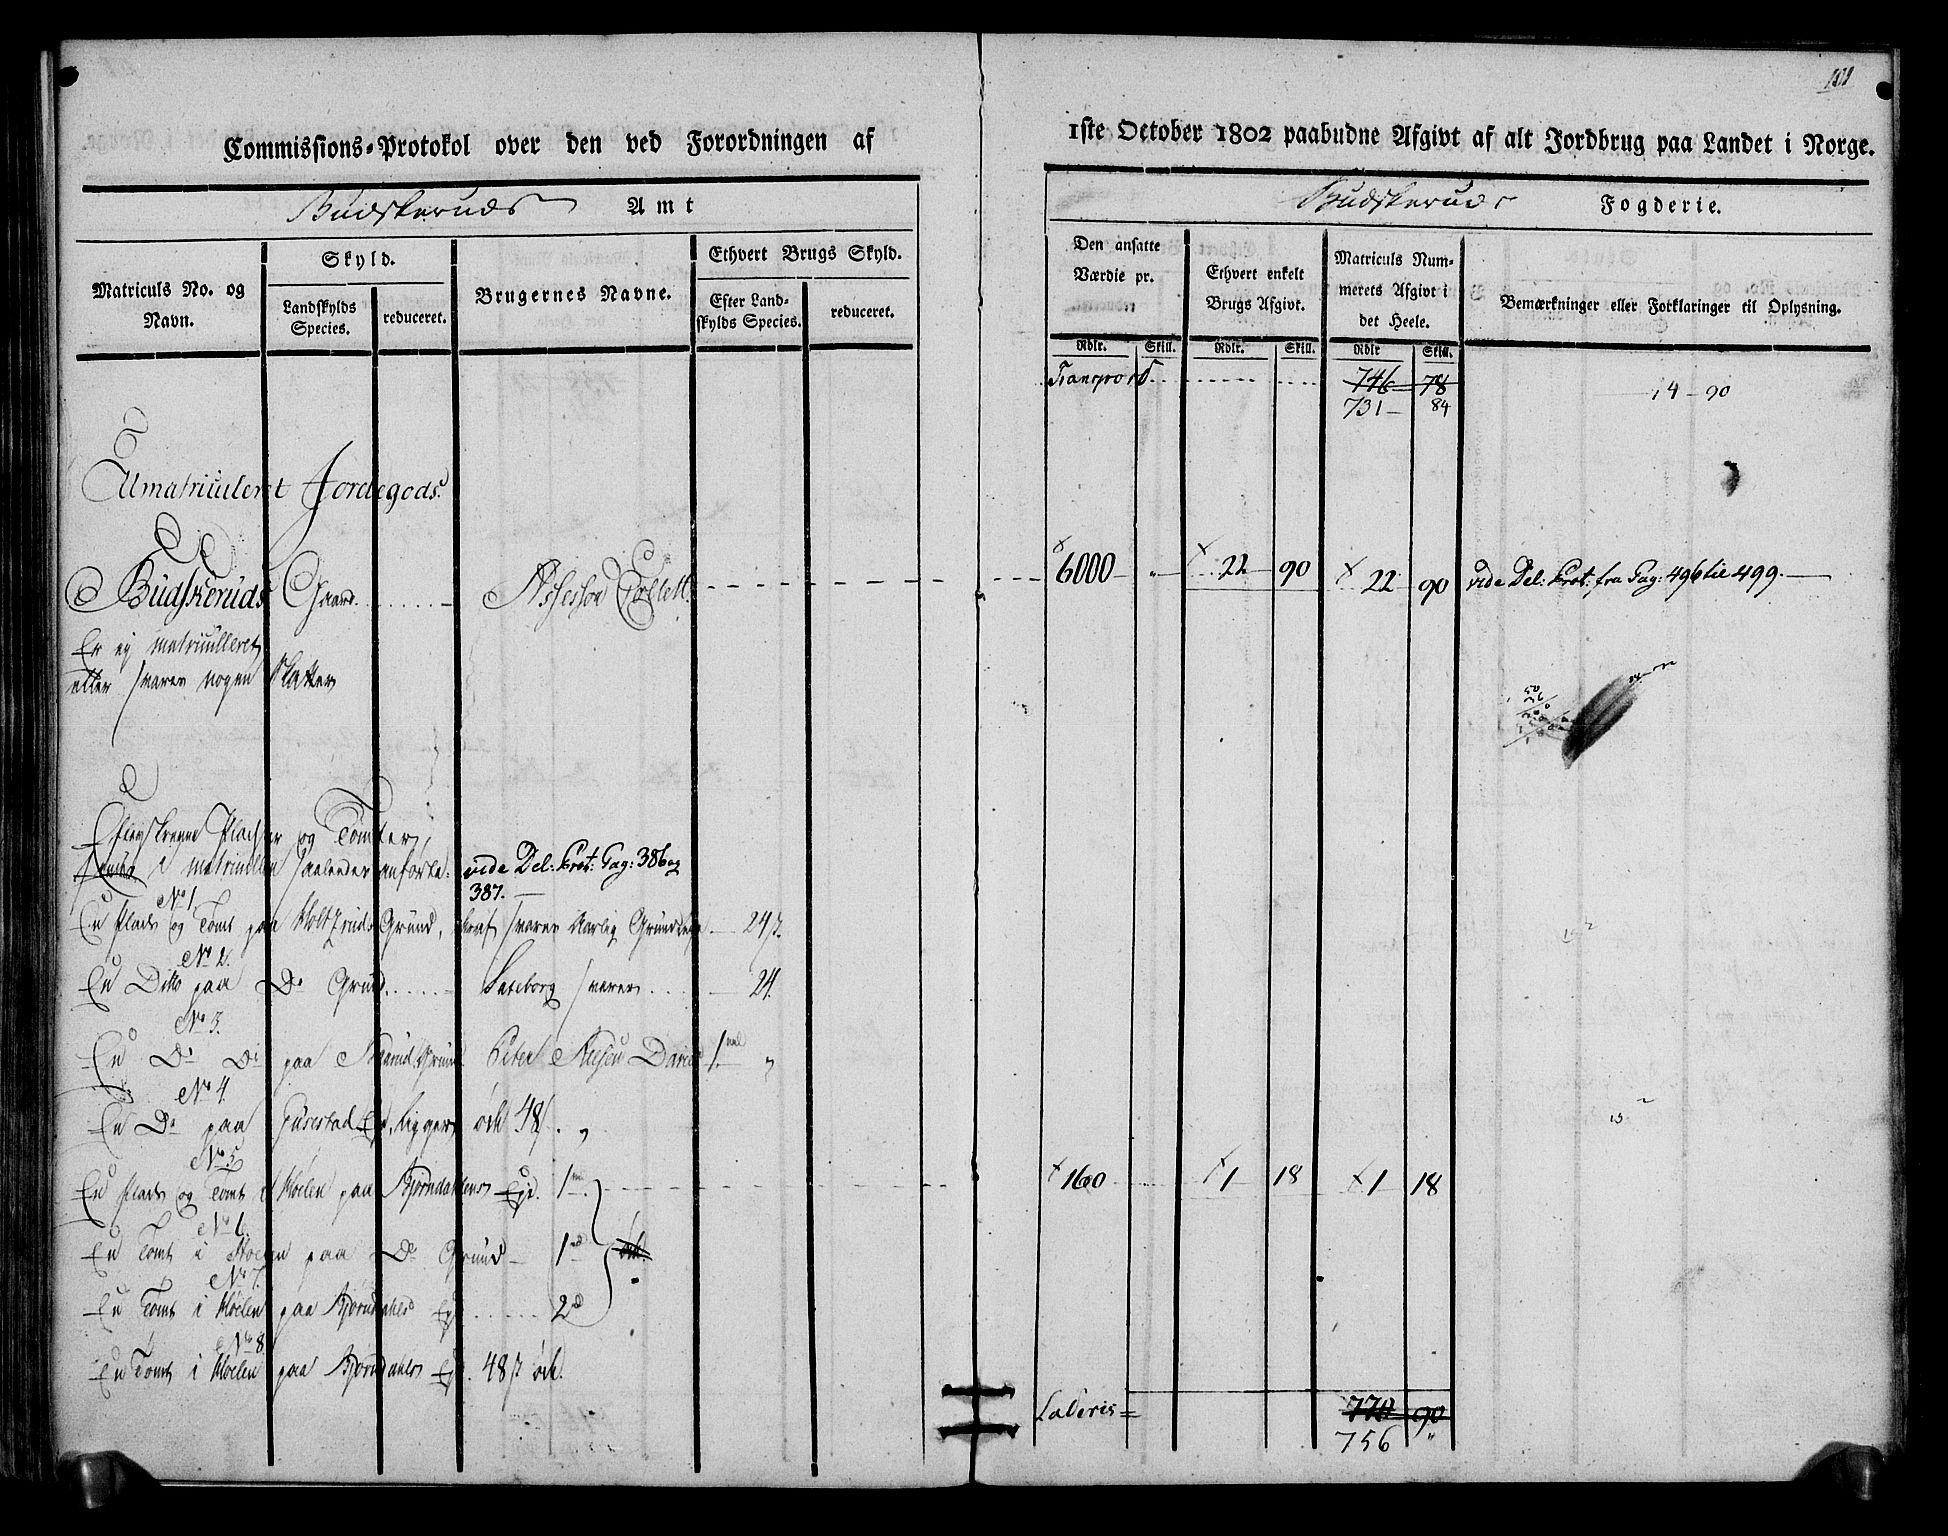 101
Commissions-Protokol over den ved Forordningen af
1ste October 1802 paabudne Afgivt af alt Jordbrug paa Landet i Norge.
Budskeruds Amt
Budskeruds Fogderie.
Matriculs No. og Navn.
Skyld.
Landskylds Species.
reduceret.
Brugernes Navne.
Ethvert Brugs Skyld.
Efter Land-
skylds Species.
reduceret.
Den ansatte
Værdie pr.
Ethvert enkelt
Brugs Afgivt.
Matriculs Num-
merets Afgivt i
det Heele.
Bemærkninger eller Forklaringer til Oplysning.
Rdlr. Skill. Rdlr. Skill. Rdlr Skill.
Transport 746 78
731 84
14 - 90
Umatriculeret Jordegods.
Budskeruds Gaard Assessor Collett 6000 " 22 90 22 90 vide Del: Prot: fra Pag: 496 til 499.
Er ej matriculleret
eller svarer nogen Skatter
Pladser og Tomter,
i matricullen saaledes anførte: vide Del: Prot: Pag: 386 og
387.
No 1.
En Plads og Tomt paa Grund, svarer Aarlig Grundleje 24 s.
No 2.
En Ditto paa Do Grund svarer 24.
No 3.
En Do Do paa Grund Peter 1 "
No 4.
En Do paa Eje, ligger øde 48 s. "
No 5
En Plads og Tomt i Moelen paa Bjørndalens Eje. 1 1600 1 18 1 18
No 6.
En Tomt i Moelen paa Do Grund 1 øde.
No 7.
En Tomt i Moelen paa Bjørndahls Eje 2
No 8.
En Tomt i Moelen paa Bjørndahls Eje. 48 s øde.
Lateris = 770 90
756 "